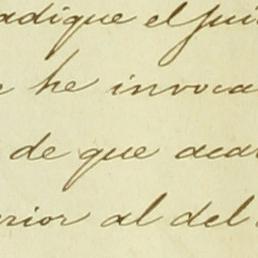 adique el jui
he invoca
de que aca
rior al del